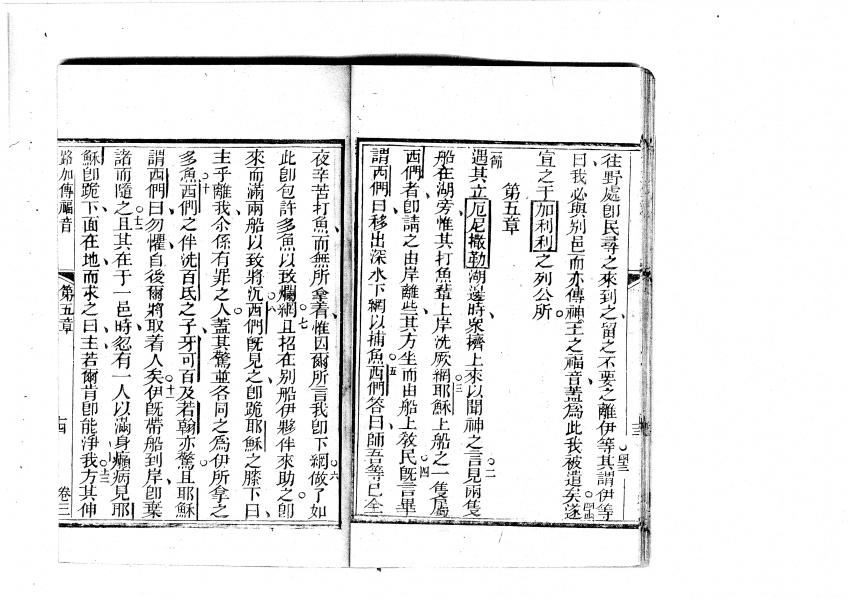 往野處卽民尋之來到之留之不要之離伊等其謂伊等
曰我必與別邑而亦傳神王之福音蓋爲此我被遣矣遂
宣之于加利利之列公所
第五章
一節遇其立厄尼撒勒湖邊時衆擠上來以聞神之言見兩隻
船在湖旁惟其打魚輩上岸洗厥網耶穌上船之一隻屬
西們者卽請之由岸離些其方坐而由船上敎民旣言畢
謂西們曰移出深水下網以捕魚西們答曰師吾等已全
夜辛苦打魚而無所拿着惟因爾所言我卽下網做了如
此卽包許多魚以致爛網且招在別船伊夥伴來助之卽
來而滿兩船以致將沉西們旣見之卽跪耶穌之膝下曰
主乎離我余係有罪之人蓋其驚並各同之爲伊所拿之
多魚西們之伴洗百氏之子牙可百及若翰亦驚且耶穌
謂西們曰勿懼自後爾將取着人矣伊旣帶船到岸卽棄
諸而隨之且其在于一邑時忽有一人以滿身癩病見耶
穌卽跪下面在地而求之曰主若爾肯卽能淨我方其伸
路加傳福音 第五章 十四 卷三